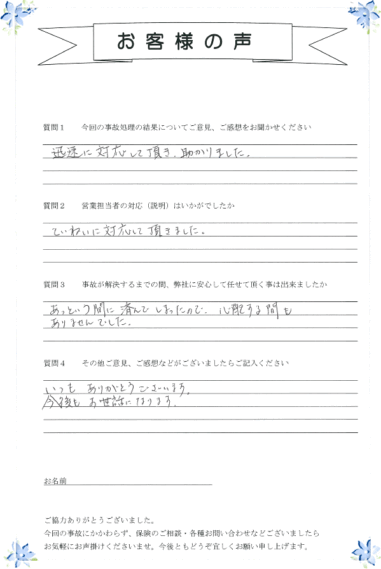 お客様の声
質問1 今回の事故処理の結果についてご意見、ご感想をお聞かせください
迅速に対応して頂き、助かりました。
質問2 営業担当者の対応（説明）はいかがでしたか
ていねいに対応して頂きました。
質問3 事故が解決するまでの間、弊社に安心して任せて頂く事は出来ましたか
あっという間に済んでしまったので、心配する間も
ありませんでした。
質問4 その他ご意見、ご感想などがございましたらご記入ください
いつもありがとうございます。
今後もお世話になります。
お名前
ご協力ありがとうございました。
今回の事故にかかわらず、保険のご相談・各種お問い合わせなどございましたら
お気軽にお声掛けくださいませ。今後ともどうぞ宜しくお願い申し上げます。